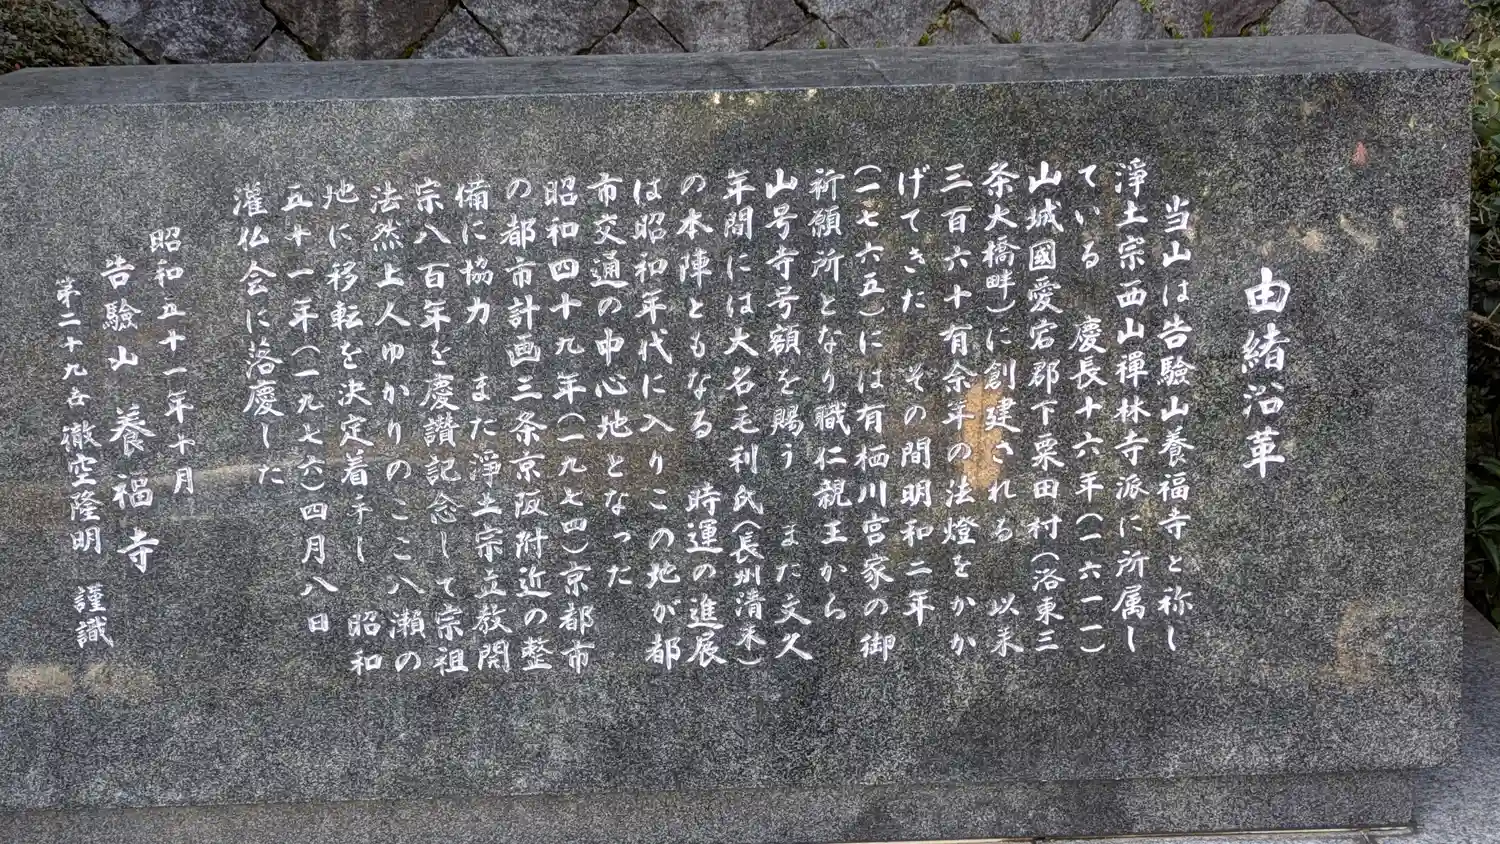 由緒沿革
当山は告驗山養福寺と称し
淨土宗西山禪林寺派に所属し
ている 慶長十六年(一六一一)
山城國愛宕郡下粟田村(洛東三
条大橋畔)に創建される 以来
三百六十有余年の法燈をかか
げてきた その間明和二年
(一七六五)には有栖川宮家の御
祈願所となり職仁親王から
山号寺号額を賜う また文久
年間には大名毛利氏(長州清末)
の本陣ともなる 時運の進展
は昭和年代に入りこの地が都
市交通の中心地となった
昭和四十九年(一九七四)京都市
の都市計画三条京阪附近の整
備に協力 また淨土宗立教開
宗八百年を慶讃記念して宗祖
法然上人ゆかりのここ八瀬の
地に移転を決定着手し 昭和
五十一年(一九七六)四月八日
灌仏会に落慶した
昭和五十一年十月
告驗山 養福寺
第二十九世 徹空隆明 謹識